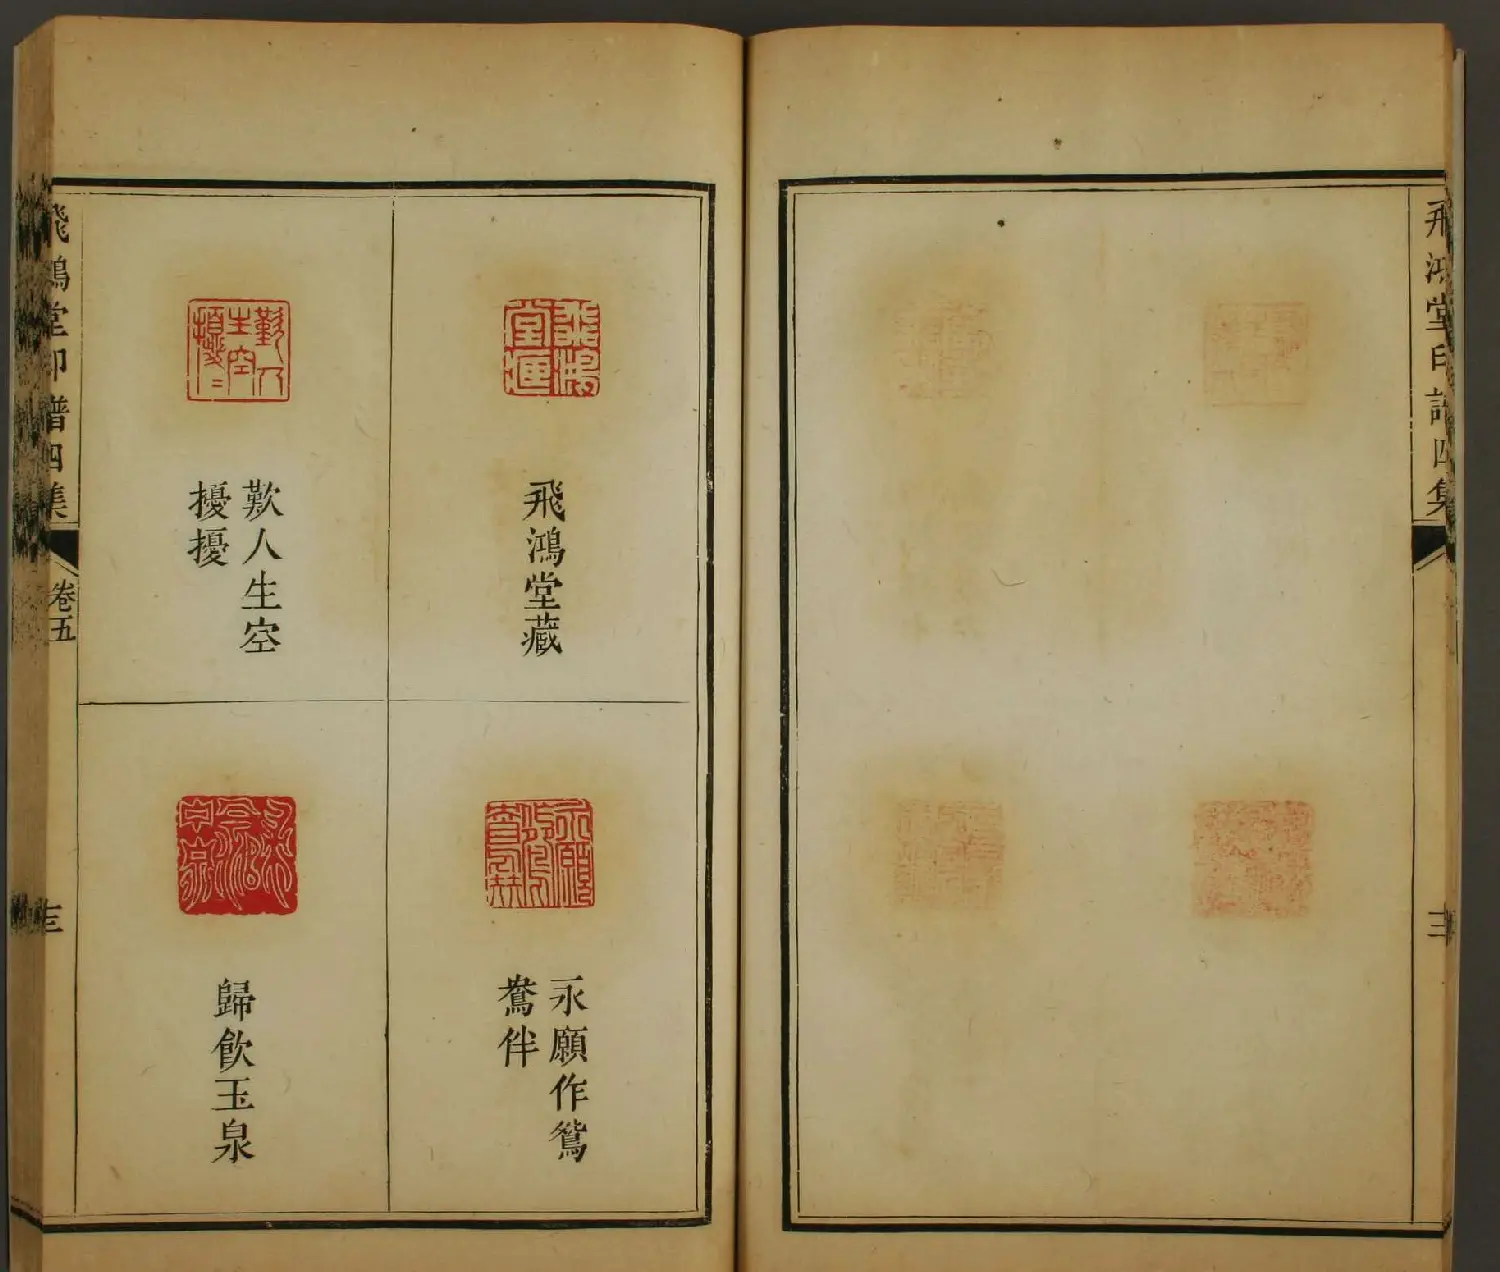 飛鴻堂印譜四集
三
飛鴻堂藏
永願作鴛
鴦伴
歎人生空
擾擾
歸飲玉泉
飛鴻堂印譜四集
卷五
三